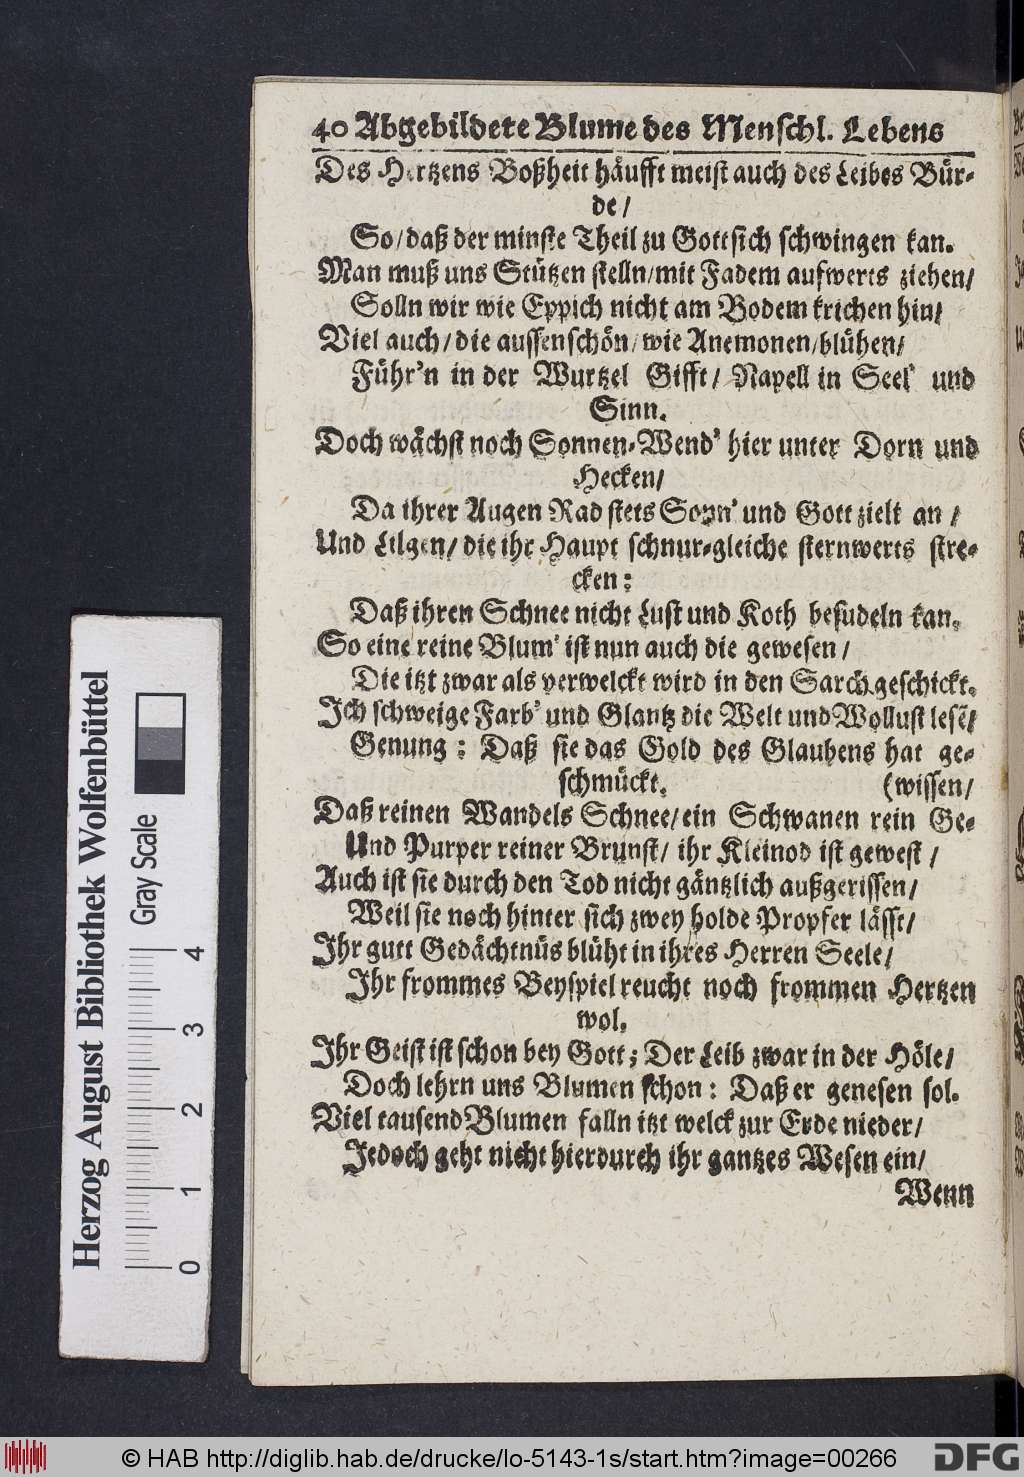 40 Abgebildete Blume des Menschl. Lebens
Des Hertzens Boßheit häufft meist auch des Leibes Bür-
de/
So/daß der minste Theil zu Gott sich schwingen kan.
Man muß uns Stützen stelln/mit Fadem aufwerts ziehen/
Solln wir wie Eppich nicht am Bodem krichen hin/
Viel auch/die aussenschön/wie Anemonen/blühen/
Führ'n in der Wurtzel Gifft/ Napell in Seel' und
Sinn.
Doch wächst noch Sonnen-Wend' hier unter Dorn und
Hecken/
Da ihrer Augen Rad stets Sonn' und Gott zielt an/
Und Lilgen/die ihr Haupt schnur-gleiche sternwerts stre-
cken:
Daß ihren Schnee nicht Lust und Koth besudeln kan.
So eine reine Blum' ist nun auch die gewesen/
Die itzt zwar als verwelckt wird in den Sarch geschickt.
Ich schweige Farb' und Glantz die Welt und Wollust lesē/
Genung: Daß sie das Gold des Glaubens hat ge-
schmückt. (wissen/
Daß reinen Wandels Schnee/ein Schwanen rein Ge-
Und Purper reiner Brunst/ ihr Kleinod ist gewest/
Auch ist sie durch den Tod nicht gäntzlich außgerissen/
Weil sie noch hinter sich zwey holde Propfer lässt/
Ihr gutt Gedächtnüs blüht in ihres Herren Seele/
Ihr frommes Beyspiel reucht noch frommen Hertzen
wol.
Ihr Geist ist schon bey Gott; Der Leib zwar in der Höle/
Doch lehrn uns Blumen schon: Daß er genesen sol.
Viel tausend Blumen falln itzt welck zur Erde nieder/
Jedoch geht nicht hierdurch ihr gantzes Wesen ein/
Wenn
Herzog August Bibliothek Wolfenbüttel
Gray Scale
0 1 2 3 4
© HAB http://diglib.hab.de/drucke/lo-5143-1s/start.htm?image=00266
DFG